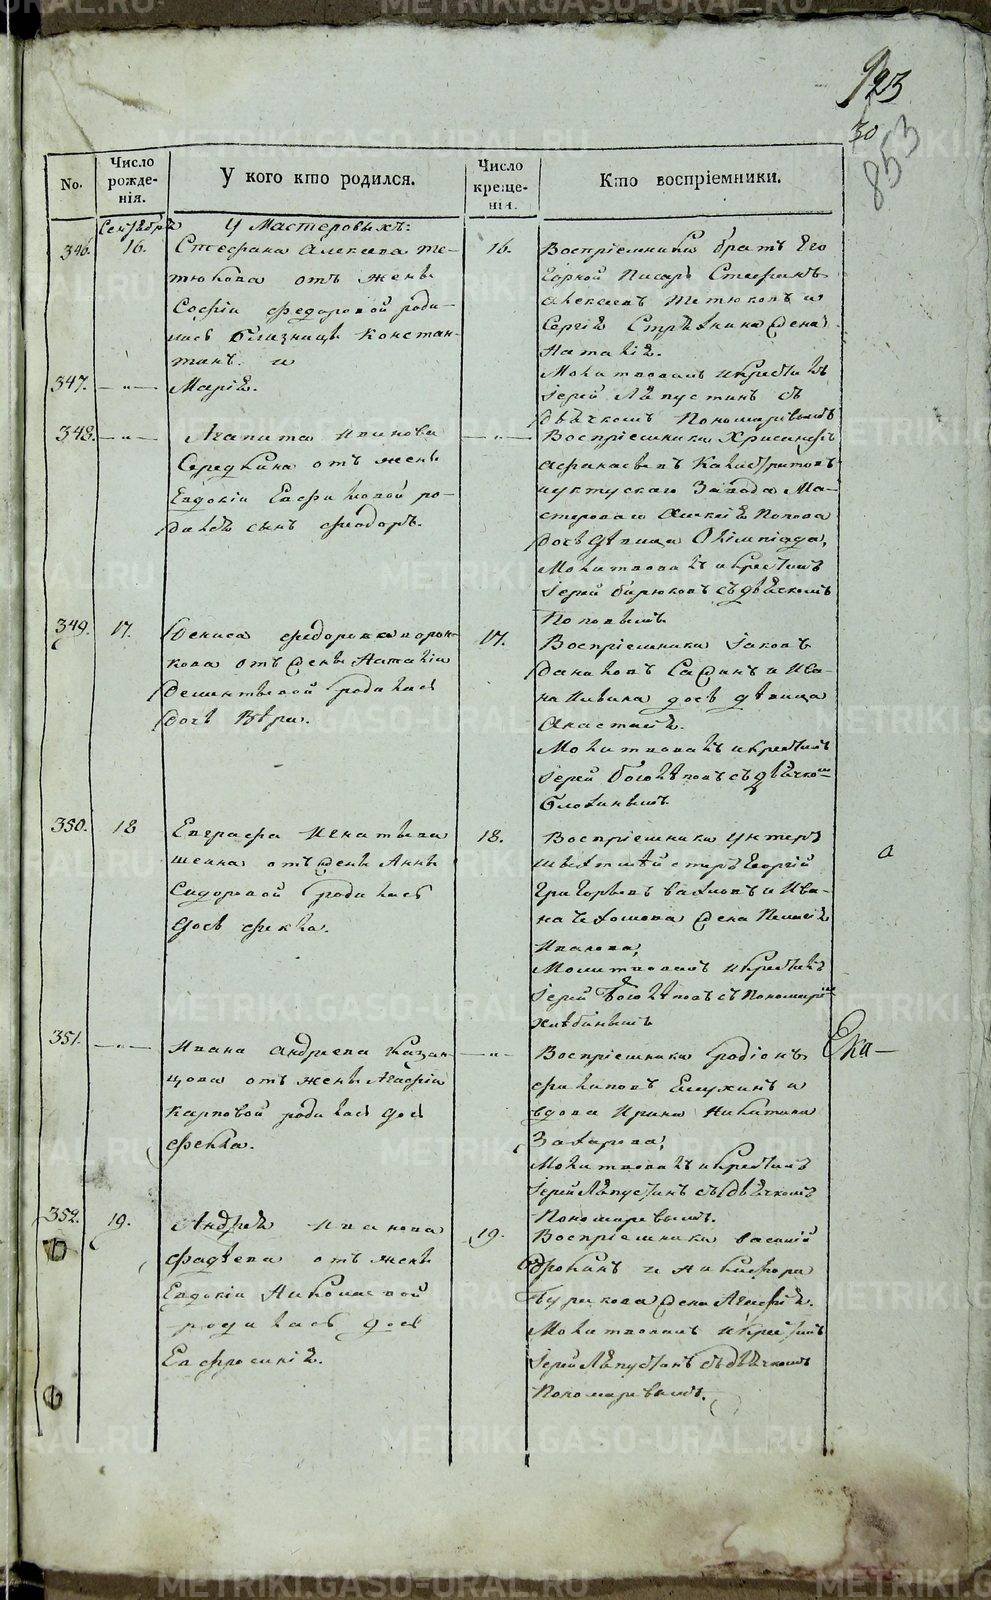 923
30
853
No.
Число рожденія.
У кого кто родился.
Число крещенія.
Кто воспріемники.
Сентябрь
У Мастеровыхъ:
346.
16.
Стефана Алексѣева Те-
тюкова отъ жены
Софіи Федоровой роди-
лись близнецы Констан-
тинъ и
16.
Воспріемники братъ Его
Горной Писарь Стефанъ
Алексѣевъ Тетюковъ и
Сергія Стрѣлкина жена
Наталія.
347.
Марія.
Молитвовалъ и крестилъ
Іерей Лапустинъ съ
дьячкомъ Пономаревымъ
348.
Агапита Иванова
Середкина отъ жены
Евдокіи Евфимовой ро-
дился сынъ Феодоръ.
Воспріемники Хрисанфъ
Афанасьевъ
уктускаго Завода Ма-
стероваго Алексѣя Попова
дочь дѣвица Олимпіада,
Молитвовалъ и крестилъ
Іерей Бирюковъ съ дьячкомъ
Поповымъ
349.
17.
Дениса Федорова Ворон-
кова отъ жены Наталіи
Дементьевой родилась
дочь Вѣра.
17.
Воспріемники Іаковъ
Даниловъ и Ива-
на дочь дѣвица
Анастасія.
Молитвовалъ и крестилъ
Іерей Боголѣповъ съ дьячком
350.
18
Евграфа Игнатьева
отъ жены Анны
Сидоровой родилась
дочь Фекла.
18.
Воспріемники Унтеръ
шихтмейстеръ Георгій
Григорьевъ и Ива-
на жена Пелагія
Иванова,
Молитвовалъ и крестилъ
Іерей Боголѣповъ съ Пономарем
Хлѣбинымъ
351.
Ивана Андреева Казан-
цова отъ жены Агафіи
Карповой родилась дочь
Фекла.
Воспріемники Родіонъ
Филиповъ и
вдова Ирина Никитина
Захарова,
Молитвовалъ и крестилъ
Іерей Лапустинъ съ дьячкомъ
Пономаревымъ.
Ека-
352.
19.
Андрея Иванова
Фадѣева отъ жены
Евдокіи Николаевой
родилась дочь
Евфросинія.
19.
Воспріемники Василій
и Никифора
жена Агафія.
Молитвовалъ и крестилъ
Іерей Лапустинъ съ дьячкомъ
Пономаревымъ.
METRIKI.GASO-URAL.RU